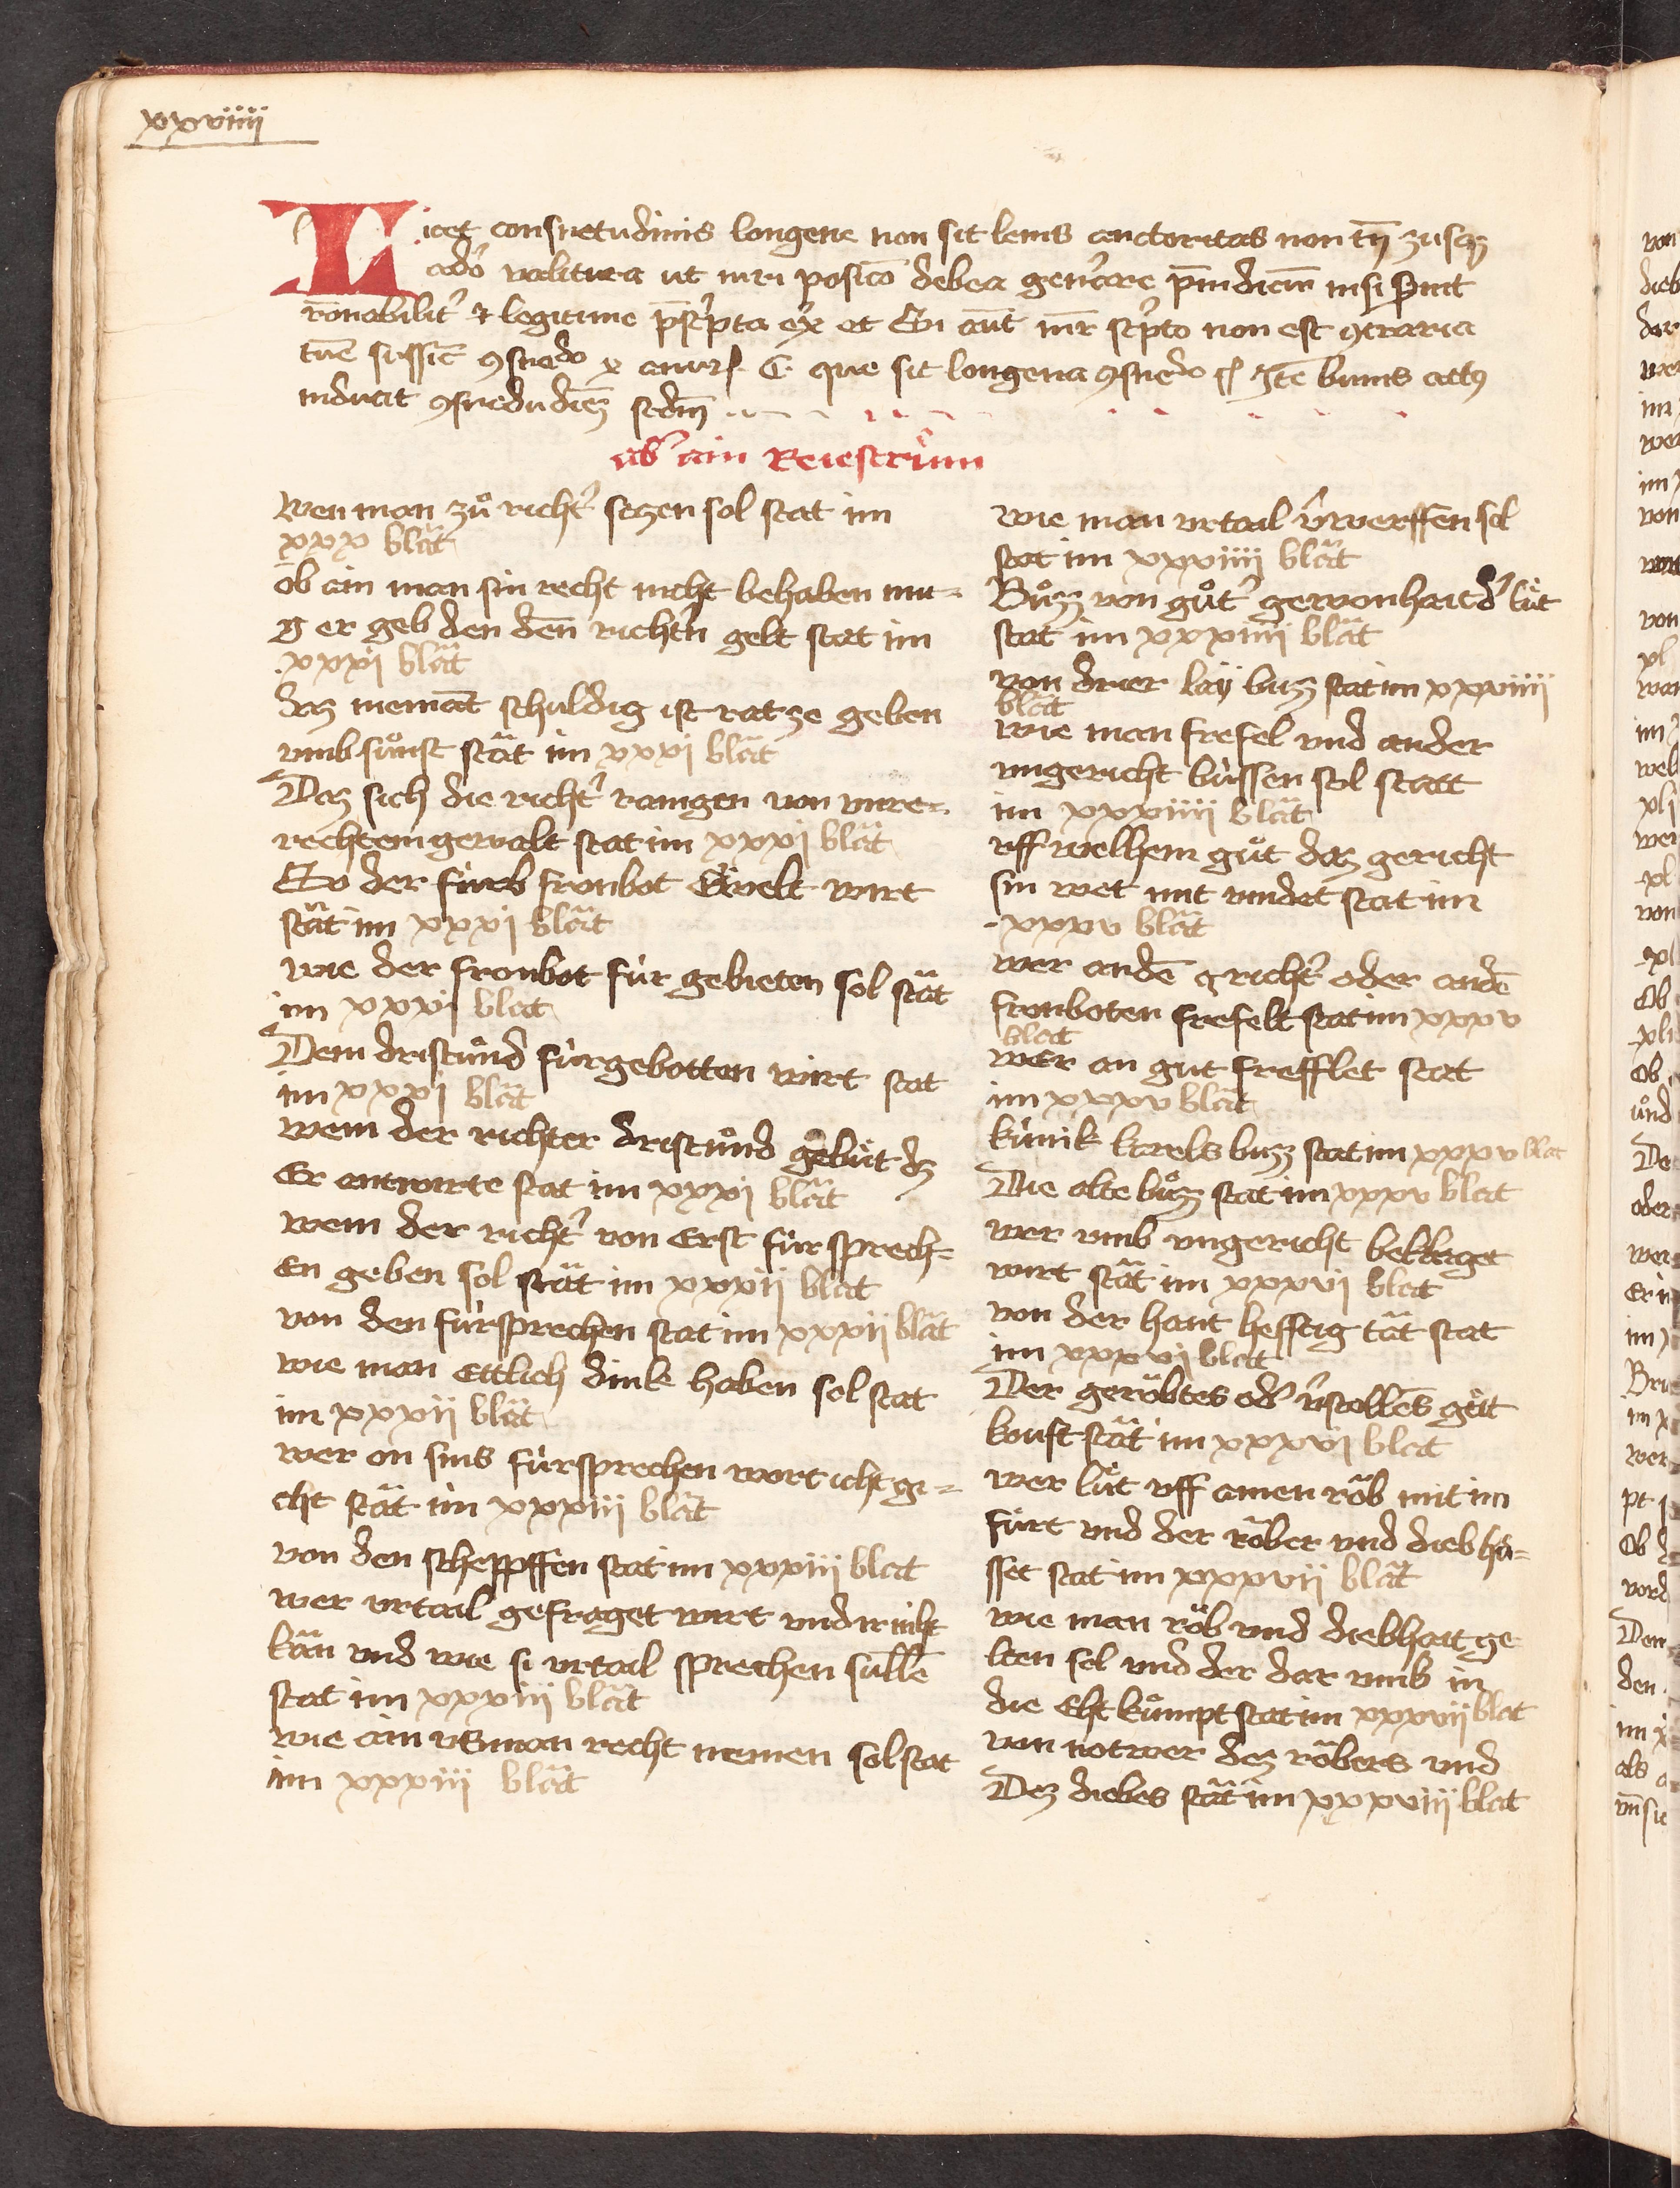 xxviiii
Licet consuetudinis longeue non sit leuis auctoritas non tn̄
adeo valitura ut iuri posico debea gen̄are p̄iudiciū nisi fuit
rōnabilit᷑ & legitime p̄sc̓pta ex et Si aūt iur̄ sc̓pto non est ꝯtraria
tūc suffic̄ ꝯsuedo x annor̄ C. que sit longeua ꝯsuedo Jtē binus actꝯ
inducit ꝯsuedudīeʒ sedm̄
ab ain Reiestrum
Wen man zů richt᷑ seczen sol stat im
xxx blat
ob ain man sin recht nicht behaben mu=
g er geb den dēn richt᷑n gelt stat im
xxxi blat
daz niemāt schuldig ist rat ze geben
vmb sůnst stät im xxxi blät
Daz sich die richt᷑ rainigen von vnre=
rechtem gewalt stat im xxxi blät
So der fürb fronbot Erwelt wirt
stät im xxxi blät
wie der fronbot für gebieten sol stät
im xxxi blat
Dem dristůnd fürgebotten wirt stat
im xxxi blät
wem der richter dristůnd gebüt dz
Er antwurte stat im xxxi blät
wem der richt᷑ von Erst fürsprech=
en geben sol stät im xxxii blat
von den fürsprechen stat im xxxii blät
wie man Ettlich dink haben sol stat
im xxxii blät
wer on sins fürsprechen wort icht gi=
cht stät im xxxiii blät
von den scheppffen stat im xxxiii blat
wer vrtail gefraget wirt vnd ir nicht
kān vnd wie si vrtail sprechen süllē
stat im xxxiii blät
wie ain vsman recht nemen sol stat
im xxxiii blät
wie man vrtail v᷑werffen sol
stat im xxxiiii blät
Bůzz von gůt᷑ gewonhait d᷑ lüt
stat im xxxiiii blät
von drier lay buz stat im xxxiiii
blat
wie man frefel vnd ander
vngericht büssen sol statt
im xxxiiii blät
vff welhem gůt daz gericht
sin wet nit vindet stat im
xxxv blät
wer andē richt᷑ oder andē
fronboten frefelt stat im xxxv
blat
wer an gut frefflet stat
im xxxv blät
künik karels buzz stat im xxxv blat
Die alte bůz stat im xxxv blat
wer vmb vngericht beklaget
wirt stät im xxxvi blat
von der hant hefftig tät stat
im xxxvi blat
Der geröbtes od᷑ v᷑stollēs gůt
kouft stät im xxxvi blat
wer lüt vff ainen röb mit im
fürt vnd der röber vnd dieb hu=
sset stat im xxxvii blät
wie man röb vnd diebhait ge
lten sol vnd der dar vmb in
die Eht kůmpt stat im xxxvii blat
von notwer dez röbers vnd
Dez diebes stät im xxxviii blat